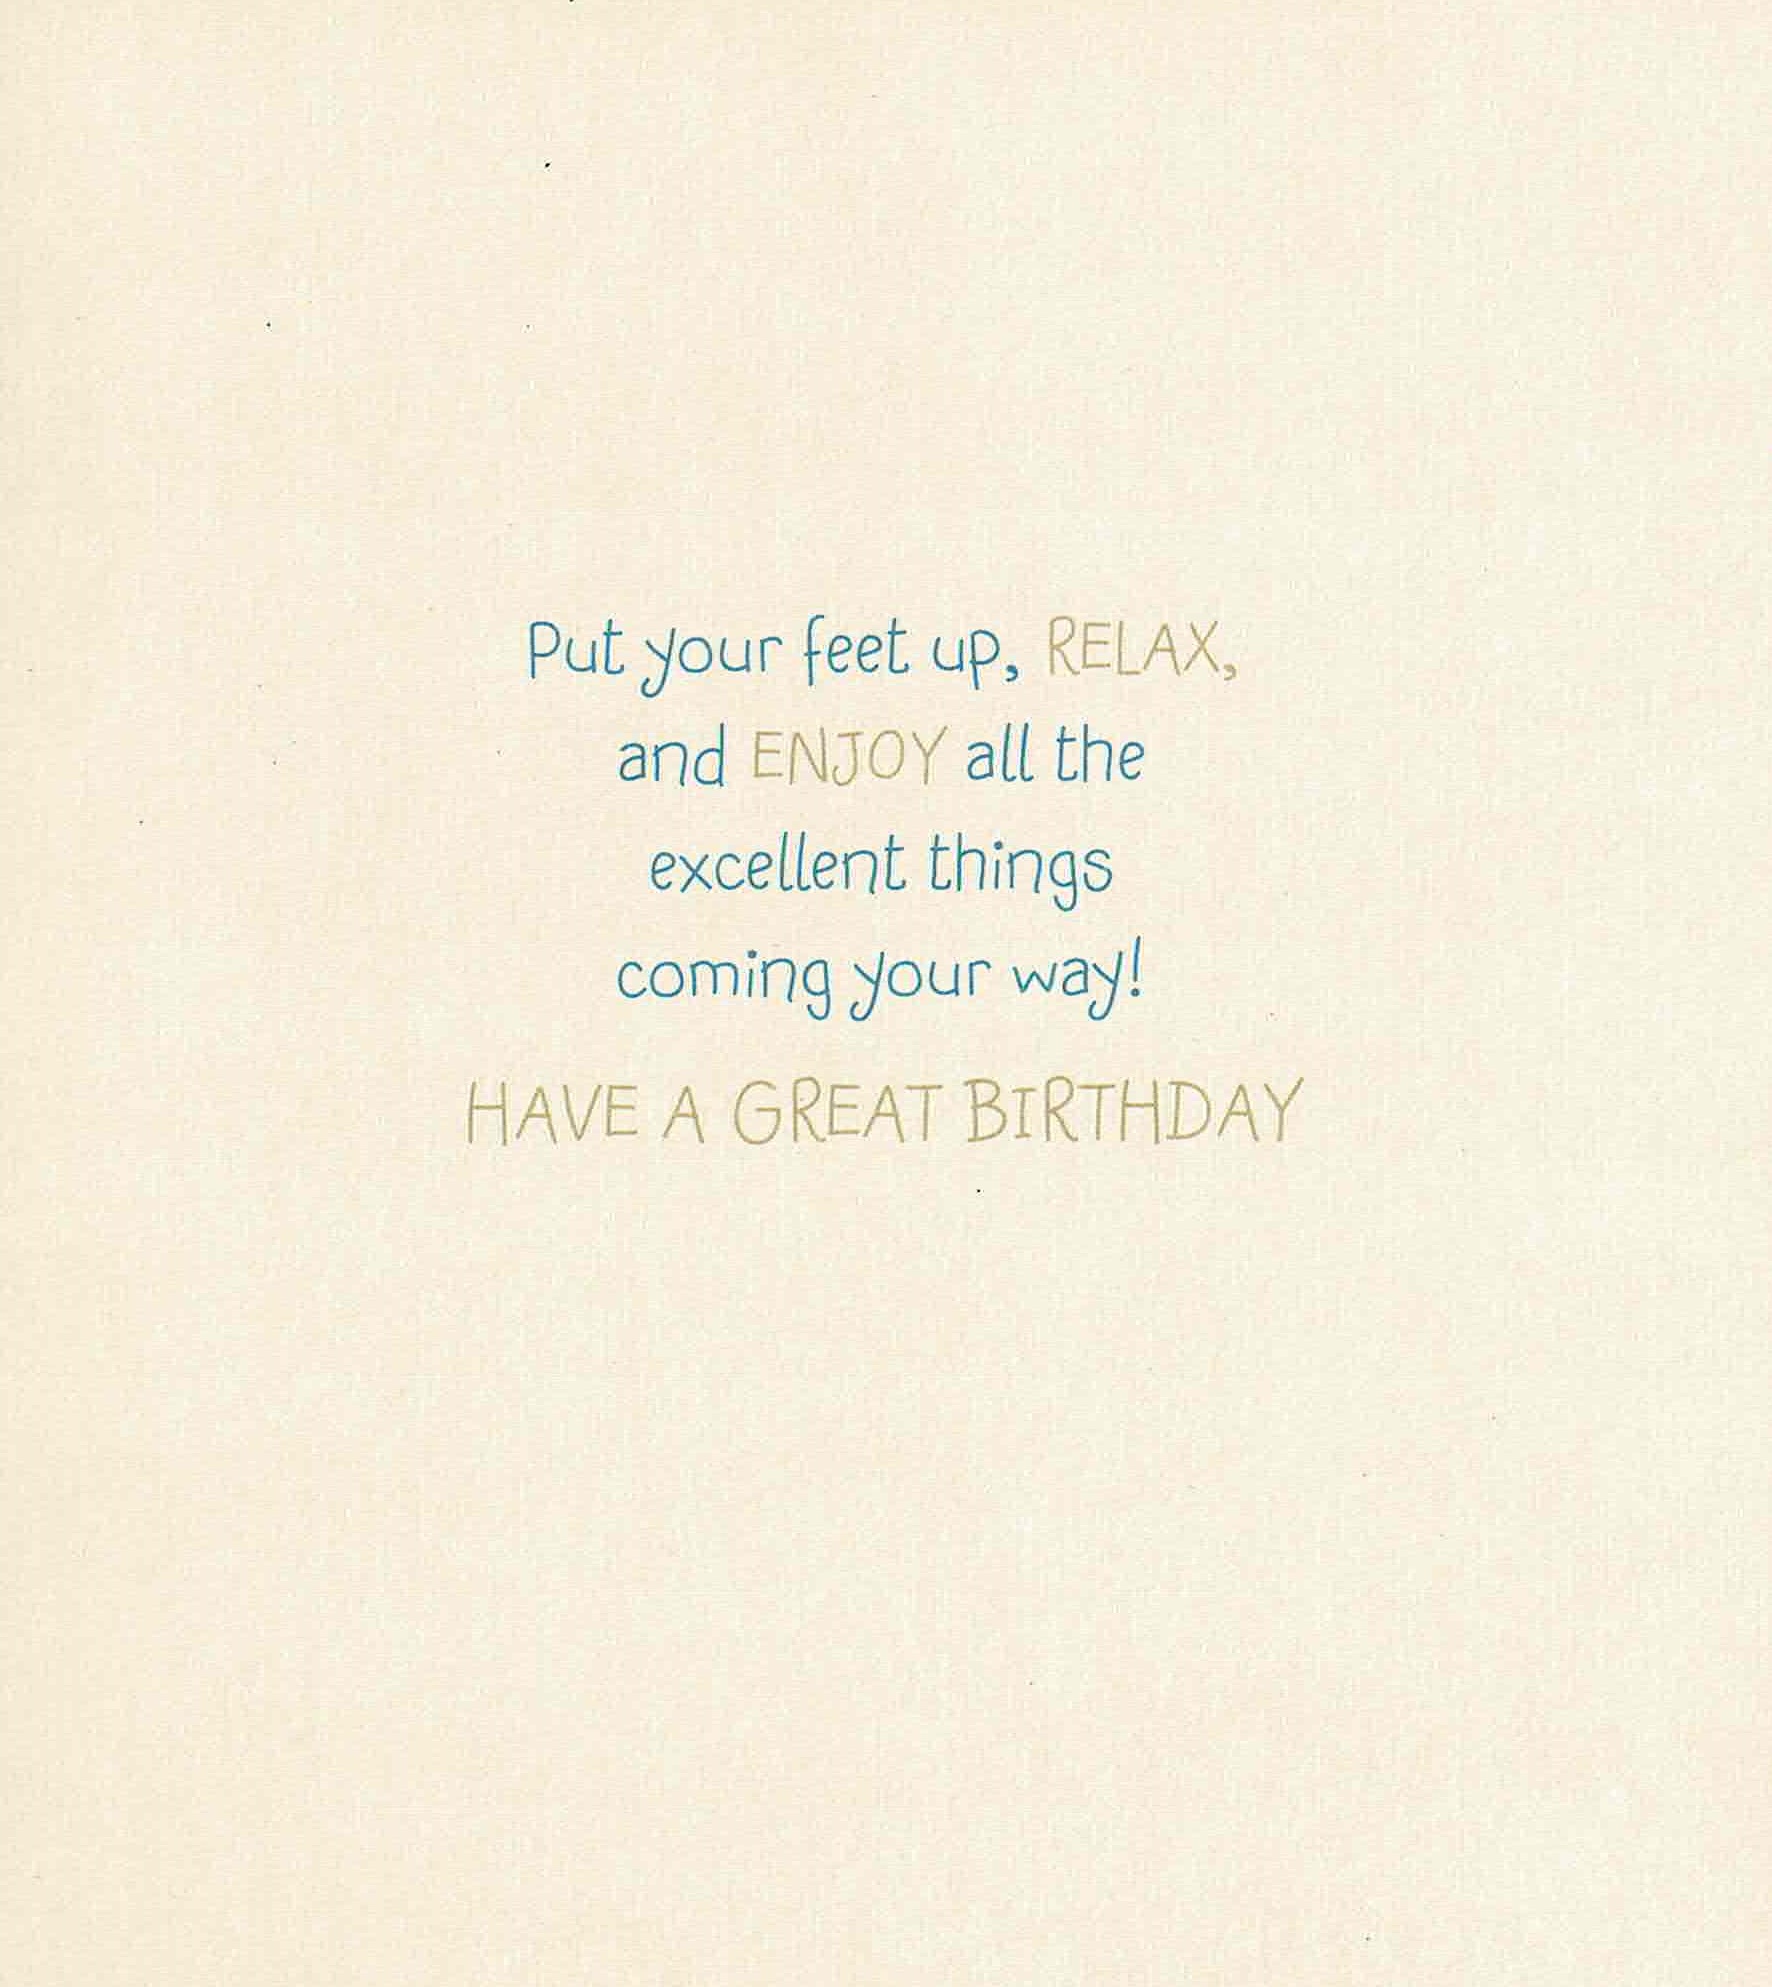 Put your feet up, RELAX,
and ENJOY all the
excellent things
coming your way!
HAVE A GREAT BIRTHDAY